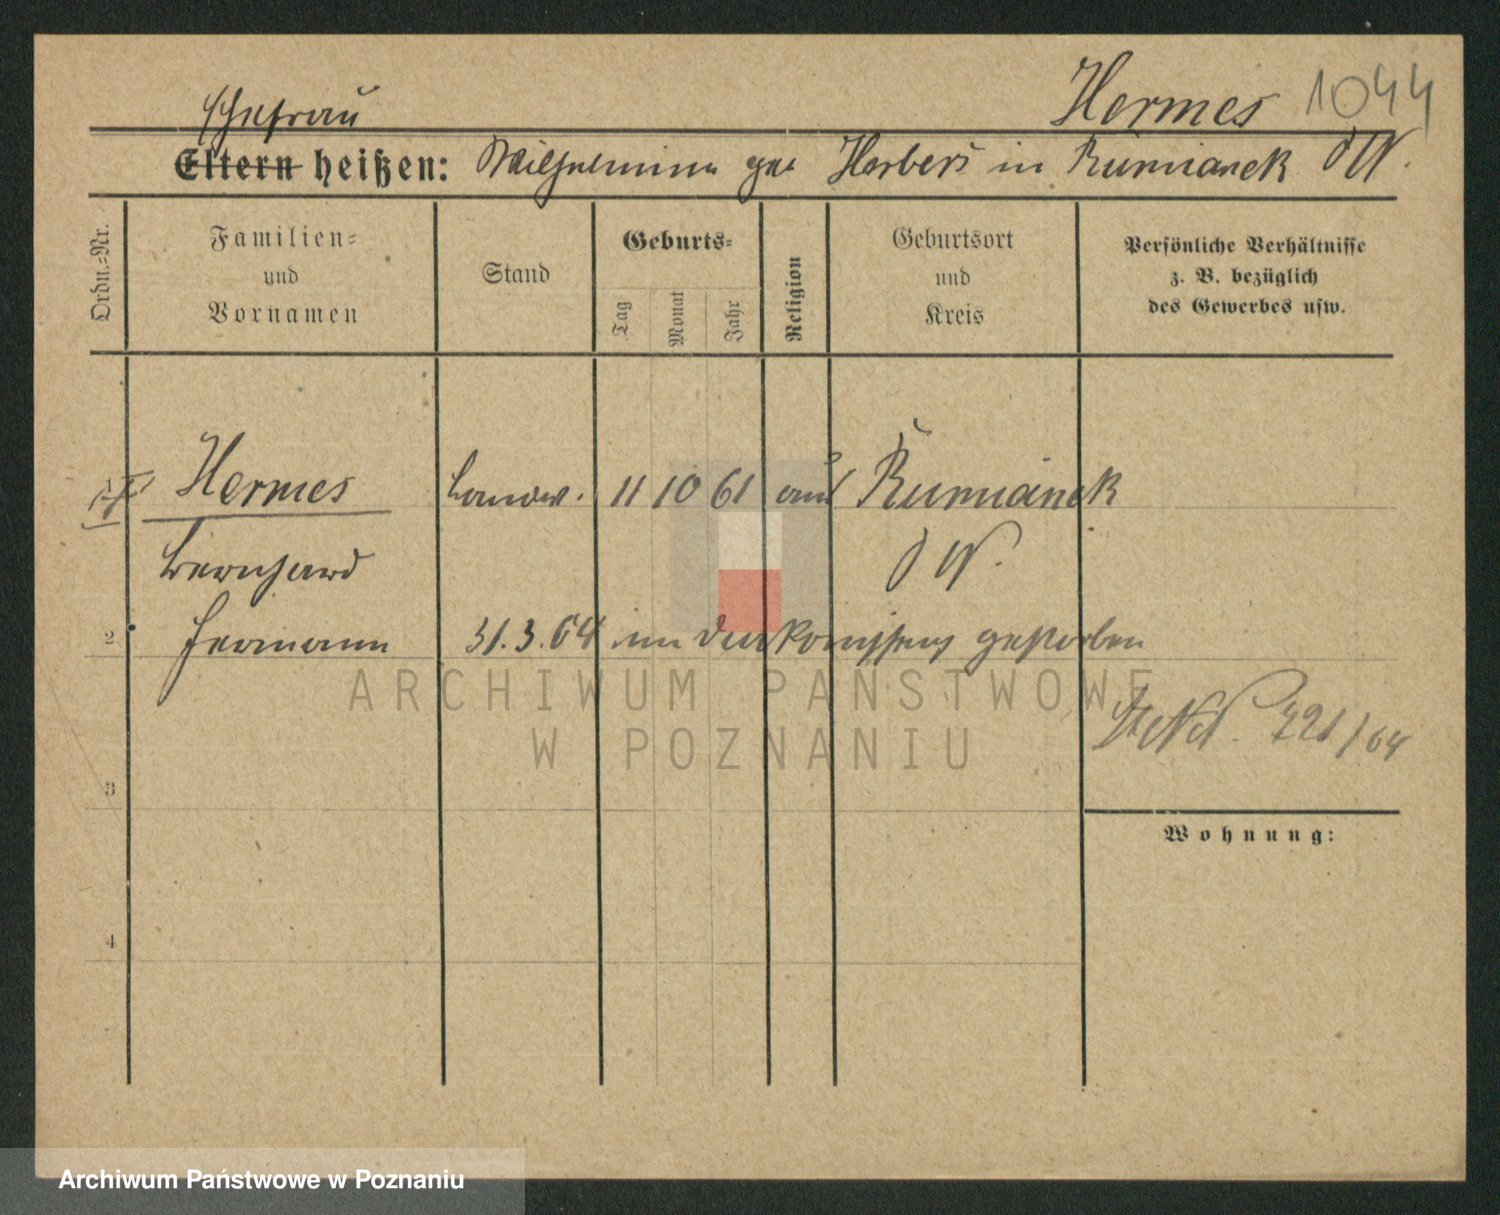 Hermes 1044
Ehefrau
Eltern heißen: Wilhelmine geb Herbers in Rumianek d W.
Ordn.-Nr.
Familien-
und
Vornamen
Stand
Geburts-
Tag
Monat
Jahr
Religion
Geburtsort
und
Kreis
Persönliche Verhältnisse
z. B. bezüglich
des Gewerbes usw.
Hermes Landw. 11 10 61 aus Rumianek
d W.
Bernhard
2
Hermann 31.3.64 im gestorben
ARCHIWUM PAŃSTWOWE
W POZNANIU
3
Wohnung:
4
Archiwum Państwowe w Poznaniu